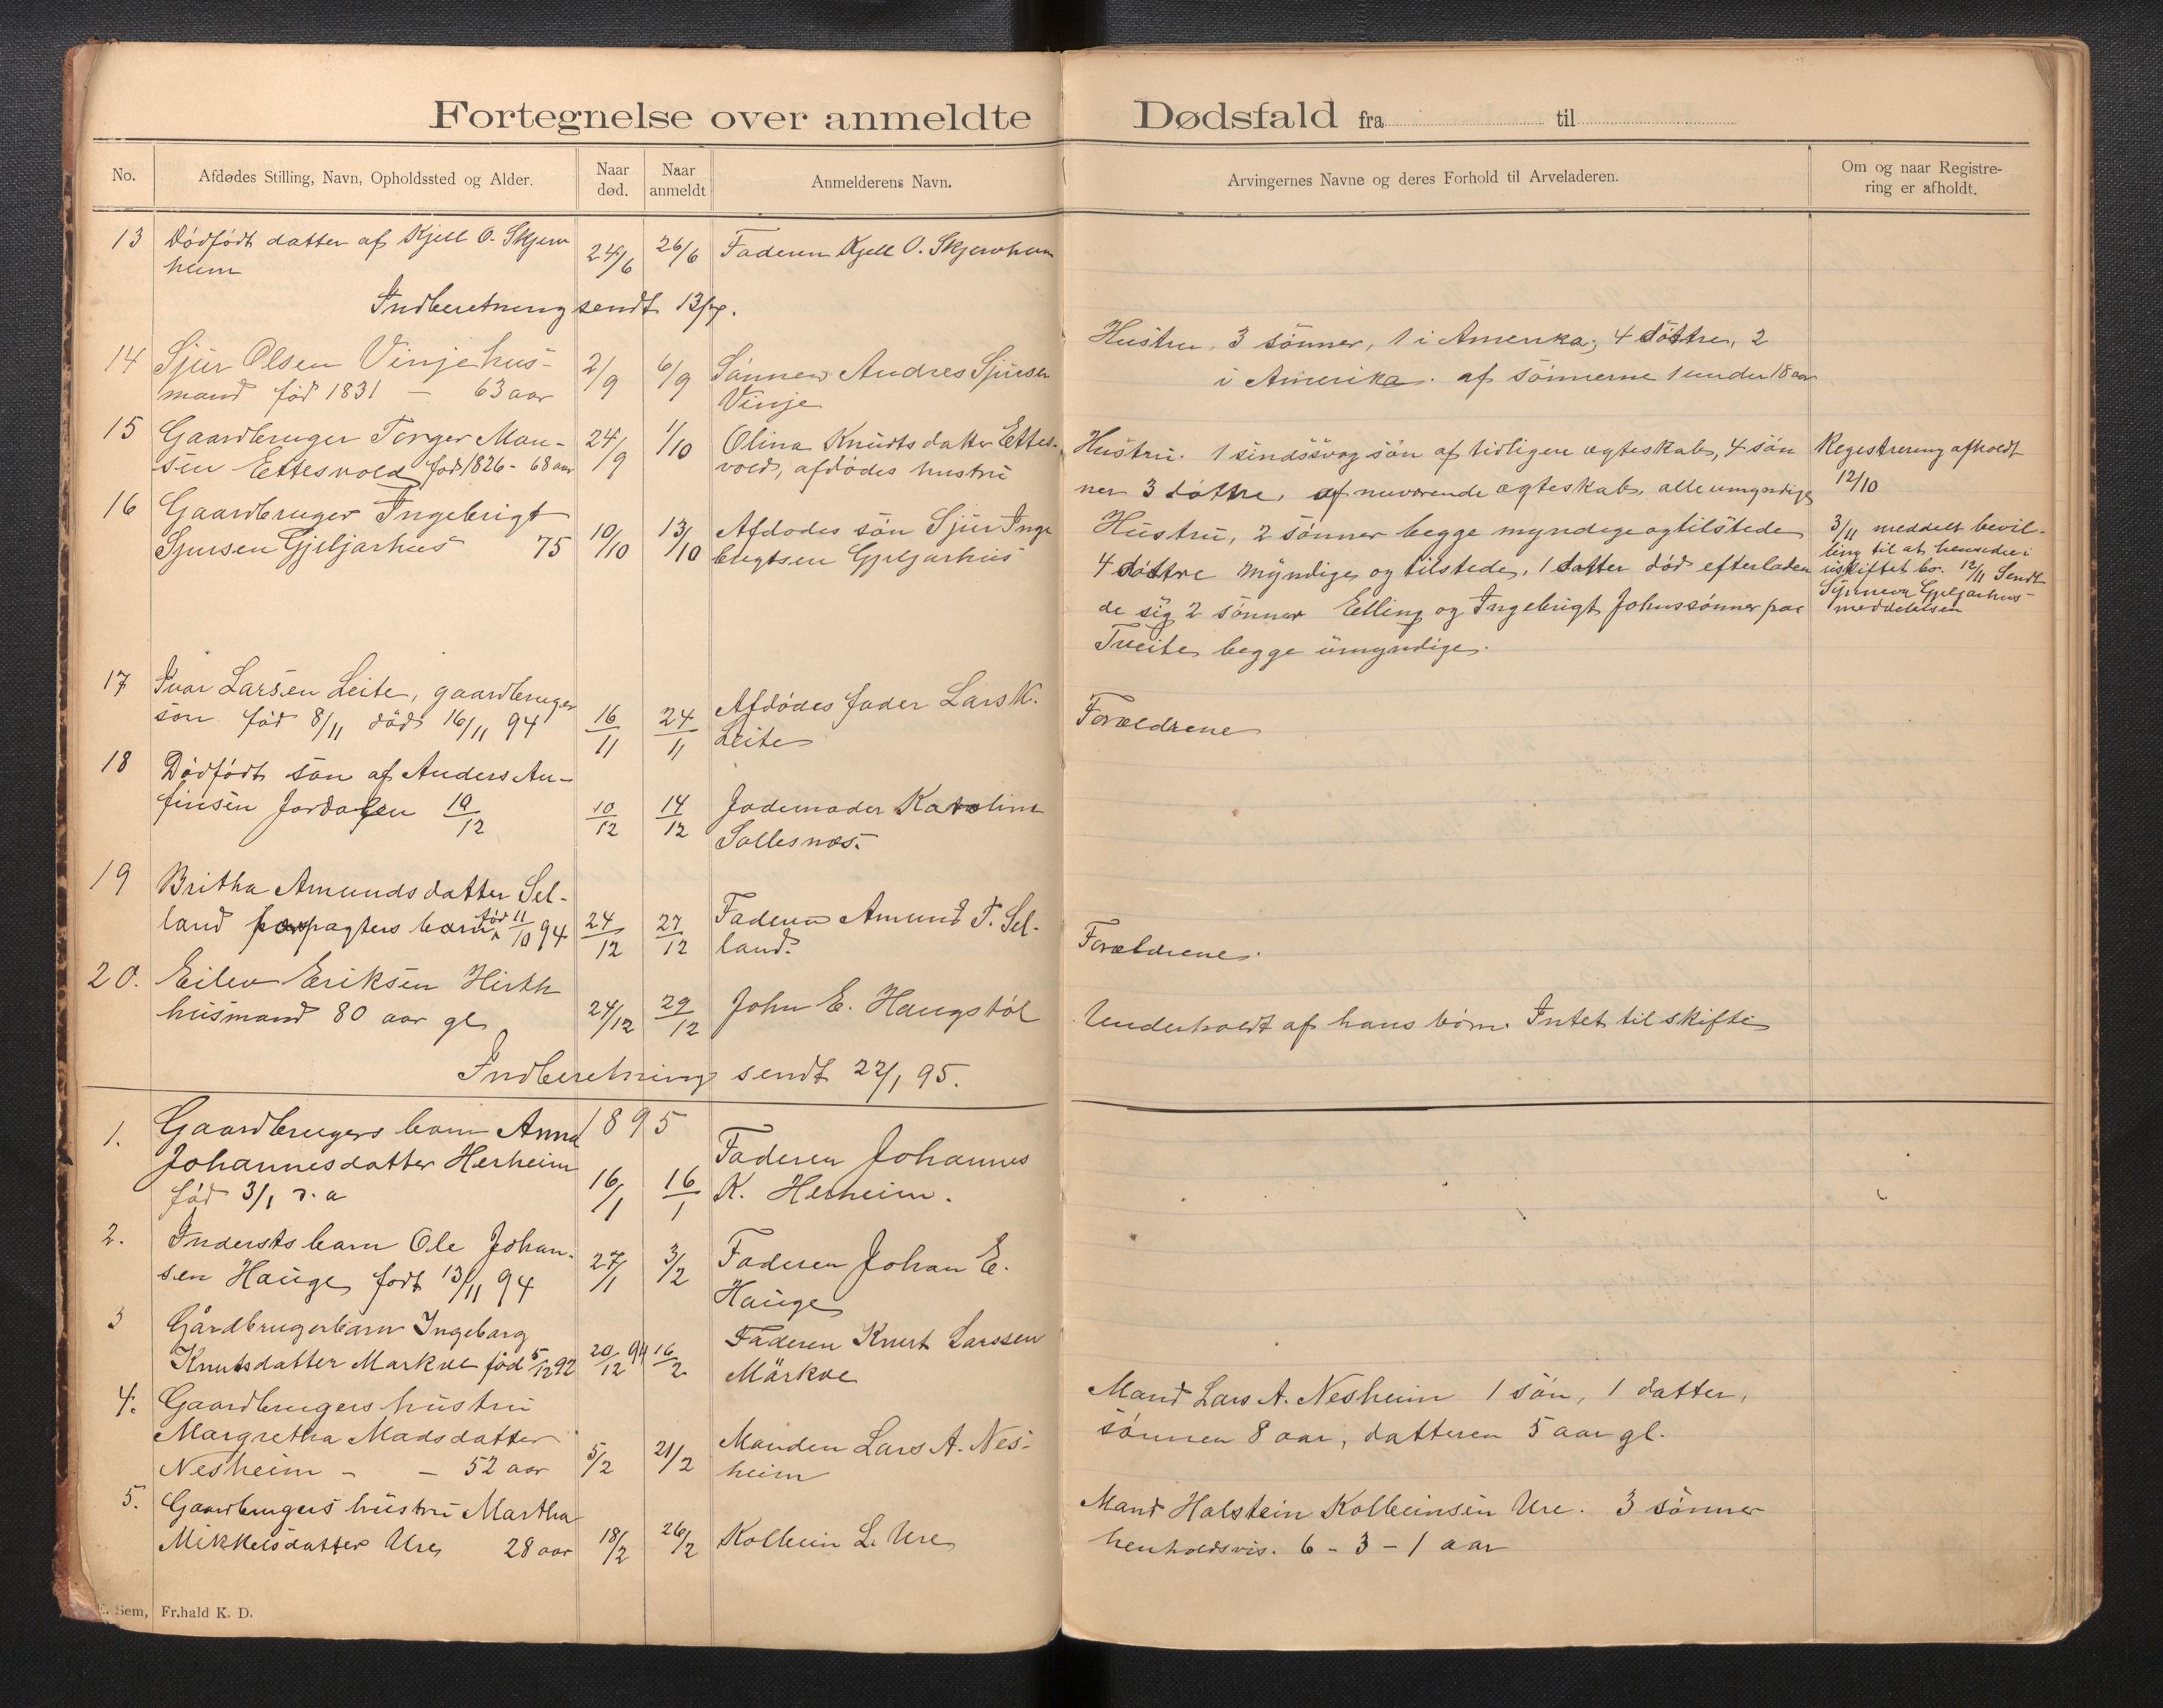 Fortegnelse over anmeldte Dødsfald fra til
No.
Afdødes Stilling, Navn, Opholdssted og Alder.
Naar død.
Naar anmeldt
Anmelderens Navn.
Arvingernes Navne og deres Forhold til Arveladeren.
Om og naar Registre-
ring er afholdt.
13 Dödfödt datter af Kjell O. Skjerv
heim
24/6 26/6 Faderen Kjell O. Skjervheim
Indberetning sendt 13/7.
14 Sjur Olsen Vinje hus-
mand föd 1831 — 63 aar
2/9 6/9 Sönnen Andres Sjursen
Vinje
Hustru, 3 sönner, 1 i Amerika; 4 döttre, 2
i Amerika. af sönnerne 1 under 18 aar
15 Gaardbruger Torger Mon-
sen Ettesvold föd 1826 - 68 aar
24/9 1/10 Olina Knudtsdatter Ettes-
vold, afdödes hustru
Hustru. 1 sindssvag sön af tidligere ægteskab, 4 sön
ner 3 döttre, af nuværende ægteskab, alle umyndige
Regestrering afholdt
12/10
16 Gaardbruger Ingebrigt
Sjursen Gjeljarhus 75
10/10 13/10 Afdödes sön Sjur Inge
brigtsen Gjeljarhus
Hustru, 2 sönner begge myndige og tilstede
4 döttre myndige og tilstede, 1 datter död efterladen
de sig 2 sönner Elling og Ingebrigt Johnssönner paa
Tveite begge umyndige.
3/11 meddelt bevil-
ling til at hensidde i
uskiftet bo. 12/11 Sendt
Synneva Gjeljarhus
meddelelsen
17 Ivar Larsen Leite, gaardbruger
sön föd 8/11 död 16/11 94
16/11 24/11 Afdödes fader Lars K.
Leite
Forældrene
18 Dödfödt sön af Anders An-
finsen Jordalen 10/12
10/12 14/12 Jodemoder Karoline
Sallesnæs.
19 Britha Amundsdatter Sel-
land forpagters barn föd 11/10 94
24/12 27/12 Faderen Amund T. Sel-
land.
Forældrene.
20. Eilev Eriksen Hirth
husmand 80 aar gl
24/12 29/12 John E. Haugstöl
Underholdt af hans börn. Intet til skifte
Indberetning sendt 22/1 95.
1895
1. Gaardbrugers barn Anna
Johannesdatter Herheim
föd 3/1 d. a
16/1 16/1 Faderen Johannes
K. Herheim.
2. Indersts barn Ole Johan-
sen Hauge födt 13/11 94
27/1 3/2 Faderen Johan E.
Hauge
3 Gårdbrugerbarn Ingeborg
Knutsdatter Markve föd 5/12 92
20/12 94 16/2 Faderen Knut Larssen
Märkve
4. Gaardbrugers hustru
Margretha Madsdatter
Nesheim - — 52 aar
5/2 21/2 Manden Lars A. Nes-
heim
Mand Lars A. Nesheim 1 sön, 1 datter,
sönnen 8 aar, datteren 5 aar gl.
5. Gaardbrugers hustru Martha
Mikkelsdatter Ure 28 aar
18/2 26/2 Kolbein L. Ure
Mand Halstein Kolbeinsen Ure. 3 sönner
henholdsvis. 6 - 3 - 1 aar
Sem, Fr.hald K. D.